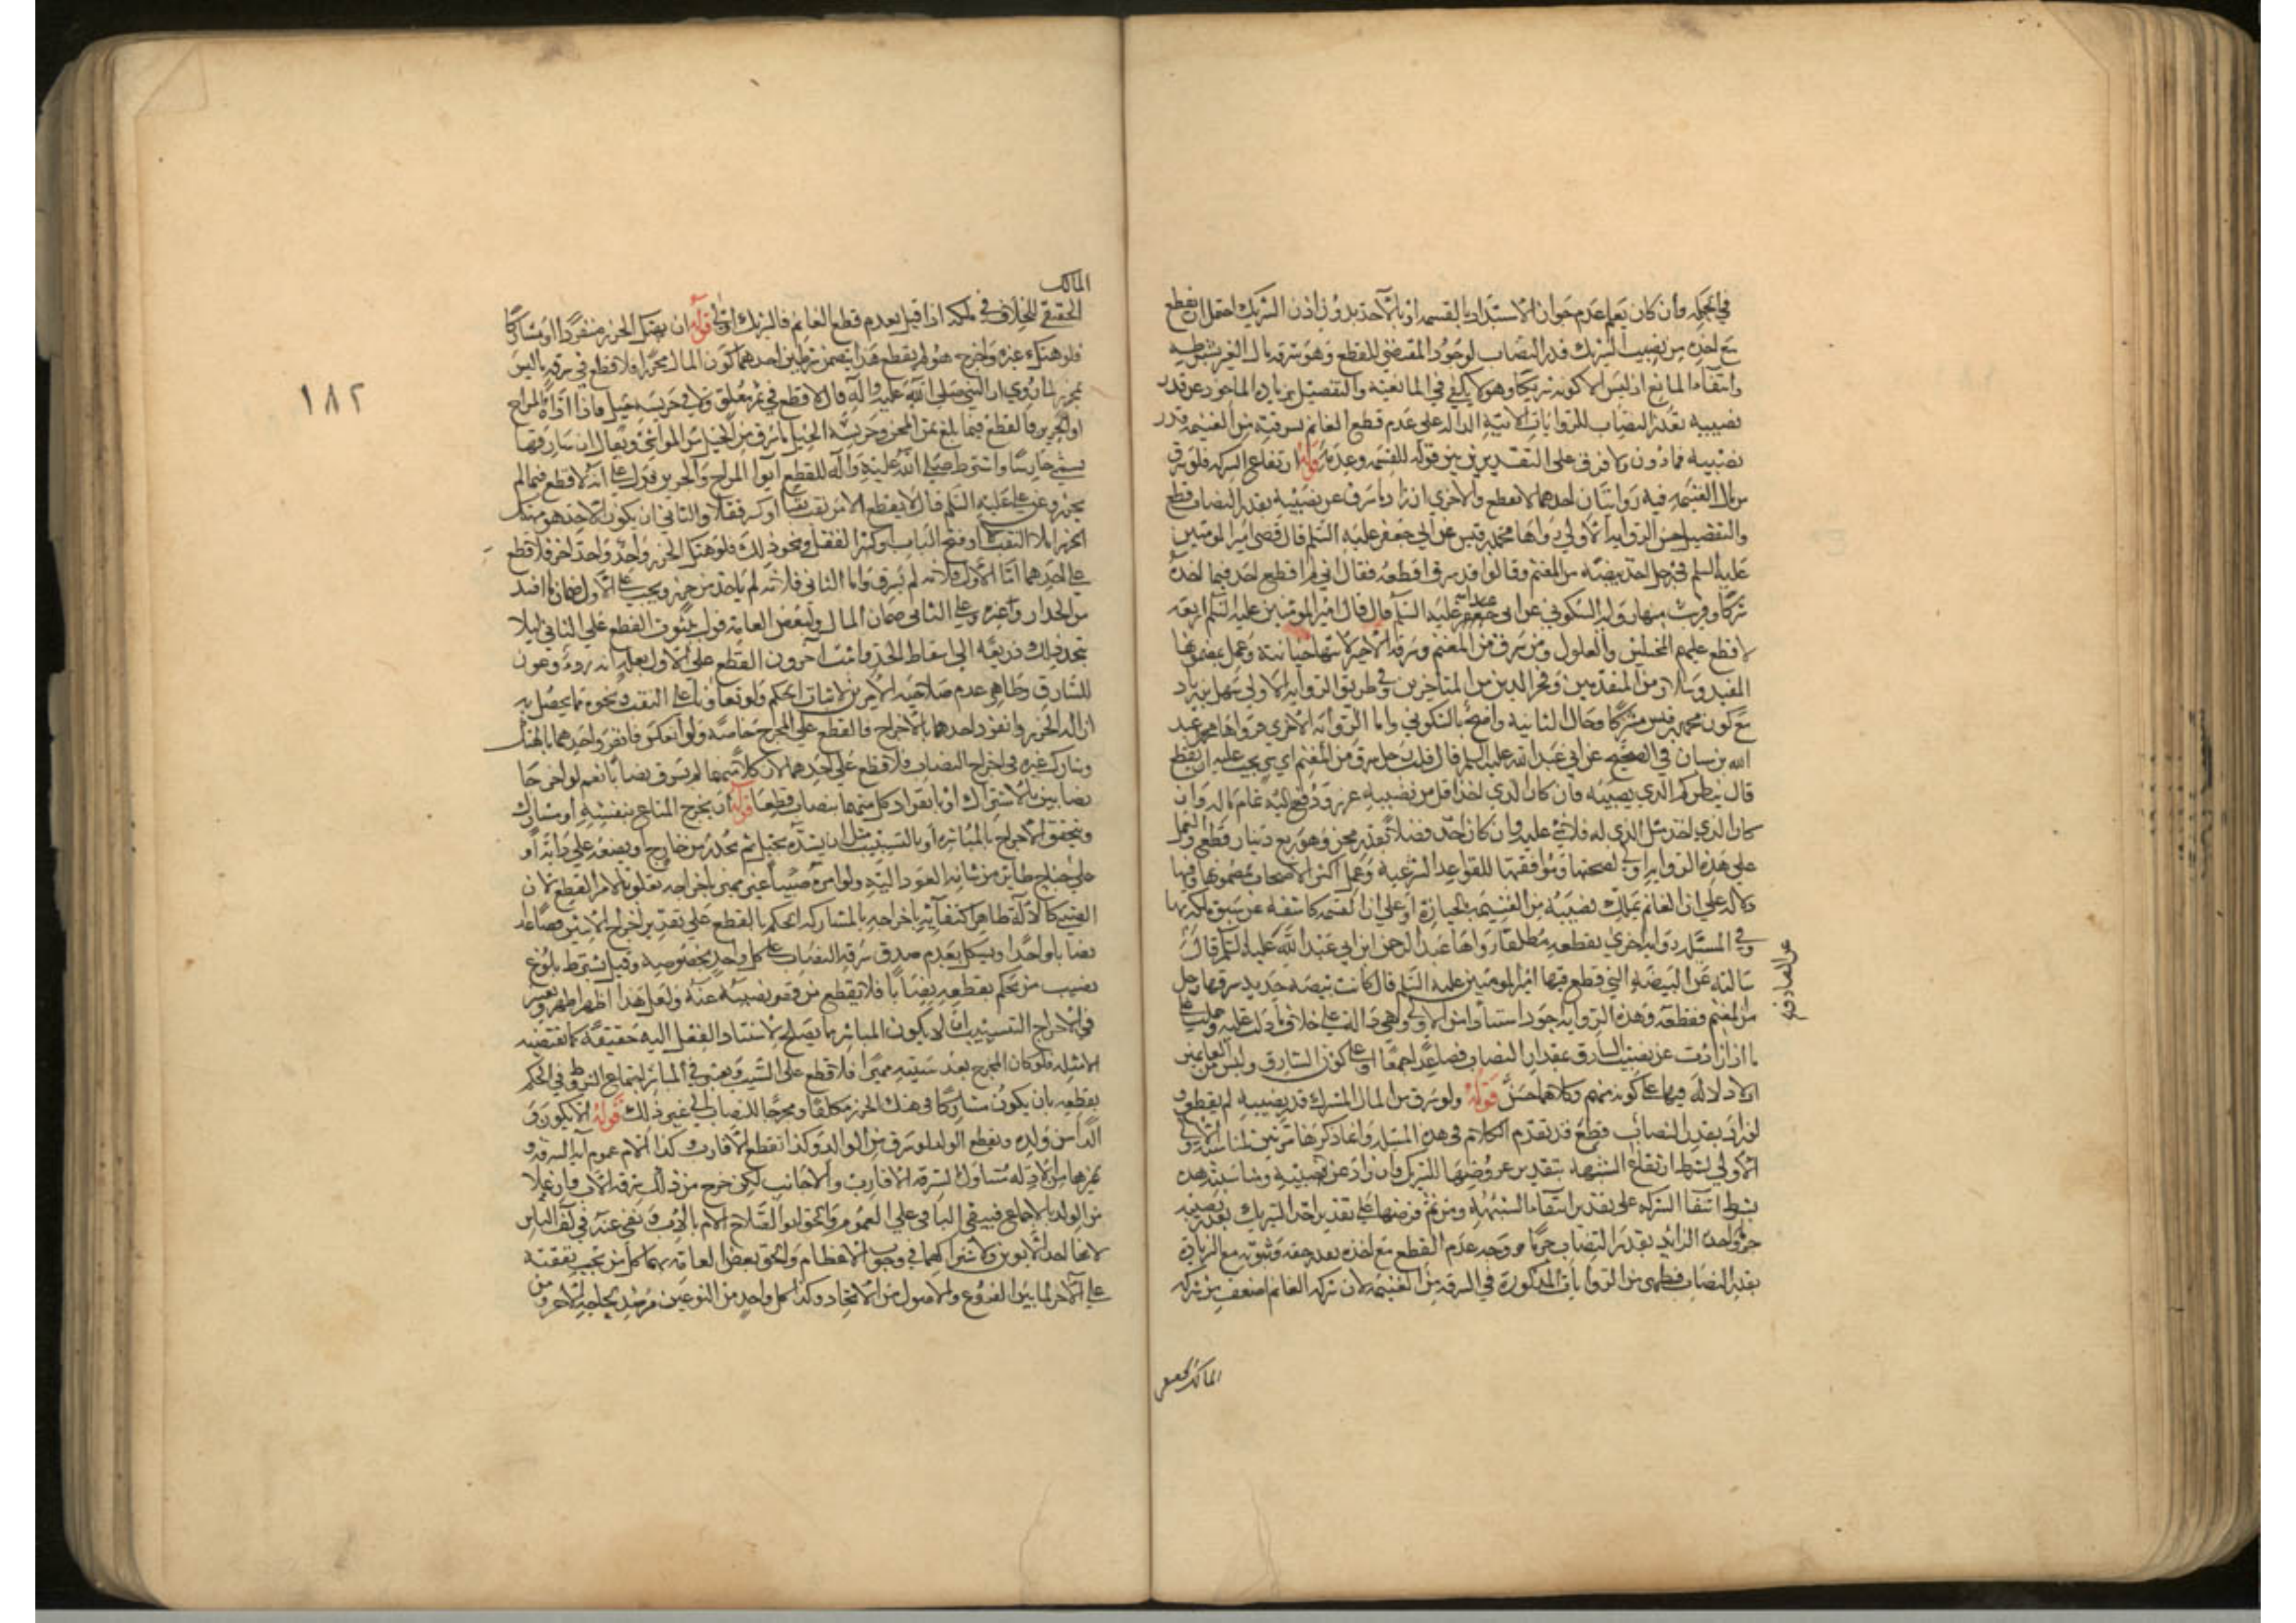 في الجملة وان كان يعلم عدم جواز الاستبداد بالقسمة او بالاخذ بدون اذن الشريك احتمل ان يقطع
مع اخذه من نصيب الشريك قدر النصاب لوجود المقتضي للقطع وهو سرقة مال الغير بشرطه
وانتفاء المانع اذ ليس الا كونه شريكا وهو لا يكفي في المانعية والتفصيل بزيادة الماخوذ عن قدر
نصيبه بقدر النصاب للروايات الاتية الدالة على عدم قطع الغانم بسرقته من الغنيمة قدر
نصيبه فما دون ولا فرق على التقديرين بين قوله للقسمة وعدمه قوله ارتفاع الشركة فلو سرق
من مال الغنيمة فيه روايتان احدهما لا يقطع والاخرى ان زاد ما سرق عن نصيبه بقدر النصاب قطع
والتفصيل حسن الرواية الاولى رواها محمد بن قيس عن ابي جعفر عليه السلم قال قضى امير المومنين
عليه السلم في رجل اخذ بيضة من المغنم وقالوا قد سرق اقطعه فقال اني لم اقطع احد فيما اخذه
شركا وقريب منها رواية السكوني عن ابي عليه السلم قال قال امير المومنين عليه السلم اربعة
لا قطع عليهم المختلس والغلول ومن سرق من المغنم وسرقة الاجير لانها خيانة وعمل بمضمونها
المفيد وسلار من المتقدمين وفخر الدين من المتاخرين وفي طريق الرواية الاولى سهل بن زياد
مع كون محمد بن قيس مشتركا وحال الثانية واضح بالسكوني واما الرواية الاخرى فرواها عبد
الله بن سنان في الصحيح عن ابي عبد الله عليه السلم قال قلت رجل سرق من المغنم اي شي يجب عليه ان يقطع
قال ينظر كم الذي يصيبه فان كان الذي اخذ اقل من نصيبه عزر ودفع اليه تمام ماله وان
كان الذي اخذ مثل الذي له فلا شي عليه وان كان اخذ فضلا بقدر مجن وهو ربع دينار قطع والعمل
على هذه الرواية اولى لصحتها وموافقتها للقواعد الشرعية وعمل اكثر الاصحاب بمضمونها وفيها
دلالة على ان الغانم يملك نصيبه من الغنيمة بالحيازة او على ان القسمة كاشفة عن سبق ملكه بها
وفي المسئلة رواية اخرى بقطعه مطلقا رواها عبد الرحمن ابن ابي عبد الله عليه السلم قال
عن الصادق
سالته عن البيضة التي قطع فيها امير المومنين عليه السلم قال كانت بيضة حديد سرقها رجل
من المغنم فقطعه وهذه الرواية اجود اسنادا من الاولى وهي دالة على خلاف ما دلت عليه وحملت على
ما اذا زادت عن نصيب السارق بمقدار النصاب فصاعدا جمعا او على كون السارق ليس من الغانمين
اذ لا دلالة فيها على كونه منهم وكلاهما حسن قوله ولو سرق من المال المشترك قدر نصيبه لم يقطع و
لو زاد بقدر النصاب قطع قد تقدم الكلام في هذه المسئلة واعاد ذكرها مرتين لمناسبة
الاولى بشرط ارتفاع الشبهة بتقدير عروضها للشريك وان زاد عن نصيبه ومناسبة هذه
بشرط انتفا الشركة على تقدير انتفاء الشبهة ومن ثم فرضها على تقدير اخذ الشريك بقدر نصيبه
واخذه الزائد بقدر النصاب ووجه عدم القطع مع اخذه بقدر حقه وثبوته مع الزيادة
بقدر النصاب فظهر من الروايات المذكورة في السرقة من الغنيمة لان شركة الغانم اضعف من شركة
المالك الحقيقي
المالك
الحقيقي للخلاف في ملكه اذا قيل بعدم قطع الغانم فالشريك اولى قوله ان يهتك الحرز منفردا او مشاركا
فلو هتك غيره واخرج هو لم يقطع هذا يتضمن شرطين احدهما كون المال محرزا فلا قطع في سرقة ما ليس
بمحرز لما روي ان النبي صلى الله عليه واله قال لا قطع في ثمر معلق ولا في حريسة جبل فاذا اواه المراح
او الجرين فالقطع فيما بلغ ثمن المجن وحريسة الجبل ما سرق من الجبل من المواشي ويقال ان سارقها
يسمى حارسا واشترط صلى الله عليه واله للقطع ايوا المراح والجرين فدل على انه لا قطع فيما لم
يحرز وعن علي عليه السلم قال لا يقطع الا من نقب نقبا او كسر قفلا والثاني ان يكون الاخذ هو مهتك
الحرز اما بالنقب او فتح الباب او كسر القفل ونحو ذلك فلو هتك الحرز واحد واخذ اخر فلا قطع
على احدهما اما الاول فلانه لم يسرق واما الثاني فلانه لم ياخذ من حرز ويجب على الاول ضمان ما افسد
من الجدار وغيره وعلى الثاني ضمان المال ولبعض العامة قول بثبوت القطع على الثاني ليلا
يتخذ ذلك ذريعة الى اسقاط الحد واثبت اخرون القطع على الاول بعلة انه ردء وعون
للسارق وظاهر عدم صلاحية الامرين لاثبات الحكم ولو تعاونا على النقب ونحوه مما يحصل به
ازالة الحرز وانفرد احدهما بالاخراج فالقطع على المخرج خاصة ولو انعكس فانفرد احدهما بالهتك
وشارك غيره في اخراج النصاب فلا قطع على احدهما لان كلا منهما لم يسرق نصابا نعم لو اخرجا
نصابين بالاشتراك او بانفراد كل منهما بنصاب قطعا قوله ان يخرج المتاع بنفسه او مشاركا
ويتحقق الاخراج بالمباشرة او بالتسبيب مثل ان يشده بحبل ثم يجذبه من خارج او يضعه على دابة او
على جناح طائر من شانه العود اليه ولو امر صبيا غير مميز باخراجه تعلق بالامر القطع لان
الصبي كالآلة ظاهر اكتفائه باخراجه بالمشاركة الحكم بالقطع على تقدير اخراج الاثنين فصاعدا
نصابا واحدا ويشكل بعدم صدق سرقة النصاب على كل واحد بخصوصه وقيل يشترط بلوغ
نصيب من يحكم بقطعه نصابا فلا يقطع من نقص نصيبه عنه ولعل هذا اظهر ويعتبر
في الاخراج التسبيبي ان لا يكون المباشر ما يصلح لاستناد الفعل اليه حقيقة كما تقتضيه
الامثلة فلو كان المخرج بعد سببه مميزا فلا قطع على السبب ويعتبر في المباشر اجتماع الشروط في الحكم
بقطعه بان يكون مشاركا في هتك الحرز مكلفا ومخرجا للنصاب الى غير ذلك قوله الا يكون و
الدا من ولده ويقطع الولد لو سرق من الوالد وكذا تقطع الاقارب وكذا الام عموم اية السرقة و
غيرها من الادلة متناول لسرقة الاقارب والاجانب لكن خرج من ذلك سرقة الاب وان علا
من الولد بالاجماع فيبقى الباقي على العموم والحق ابو الصلاح الام بالاب ونفى عنه في المختلف الباس
لانها احد الابوين ولاشتراكهما في وجوب الاعظام والحق بعض العامة بهما كل من تجب نفقته
على الاخر لما بين الفروع والاصول من الاتحاد وكذا كل واحد من النوعين مرصد لحاجة الاخر ومن
١٨٢